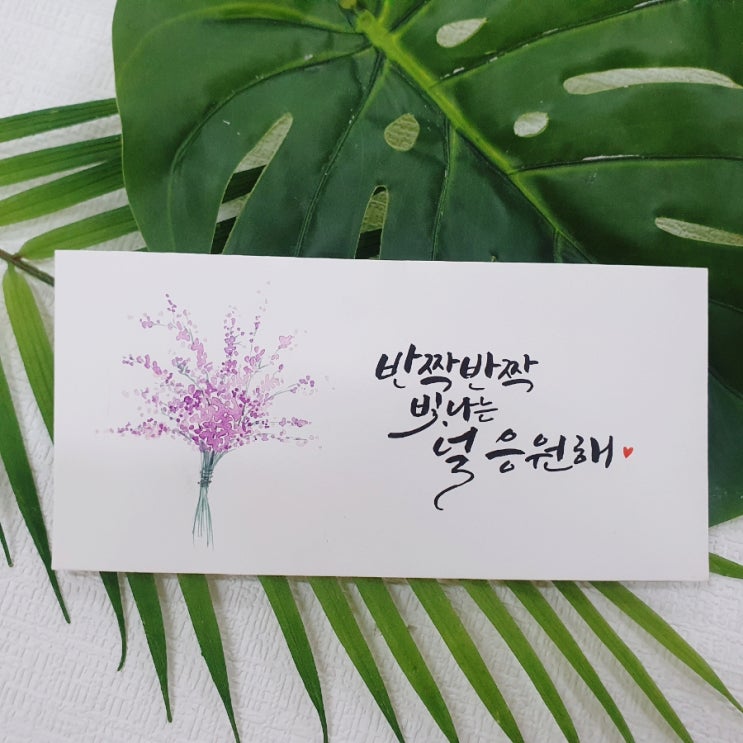 반짝반짝
빛나는
널 응원해